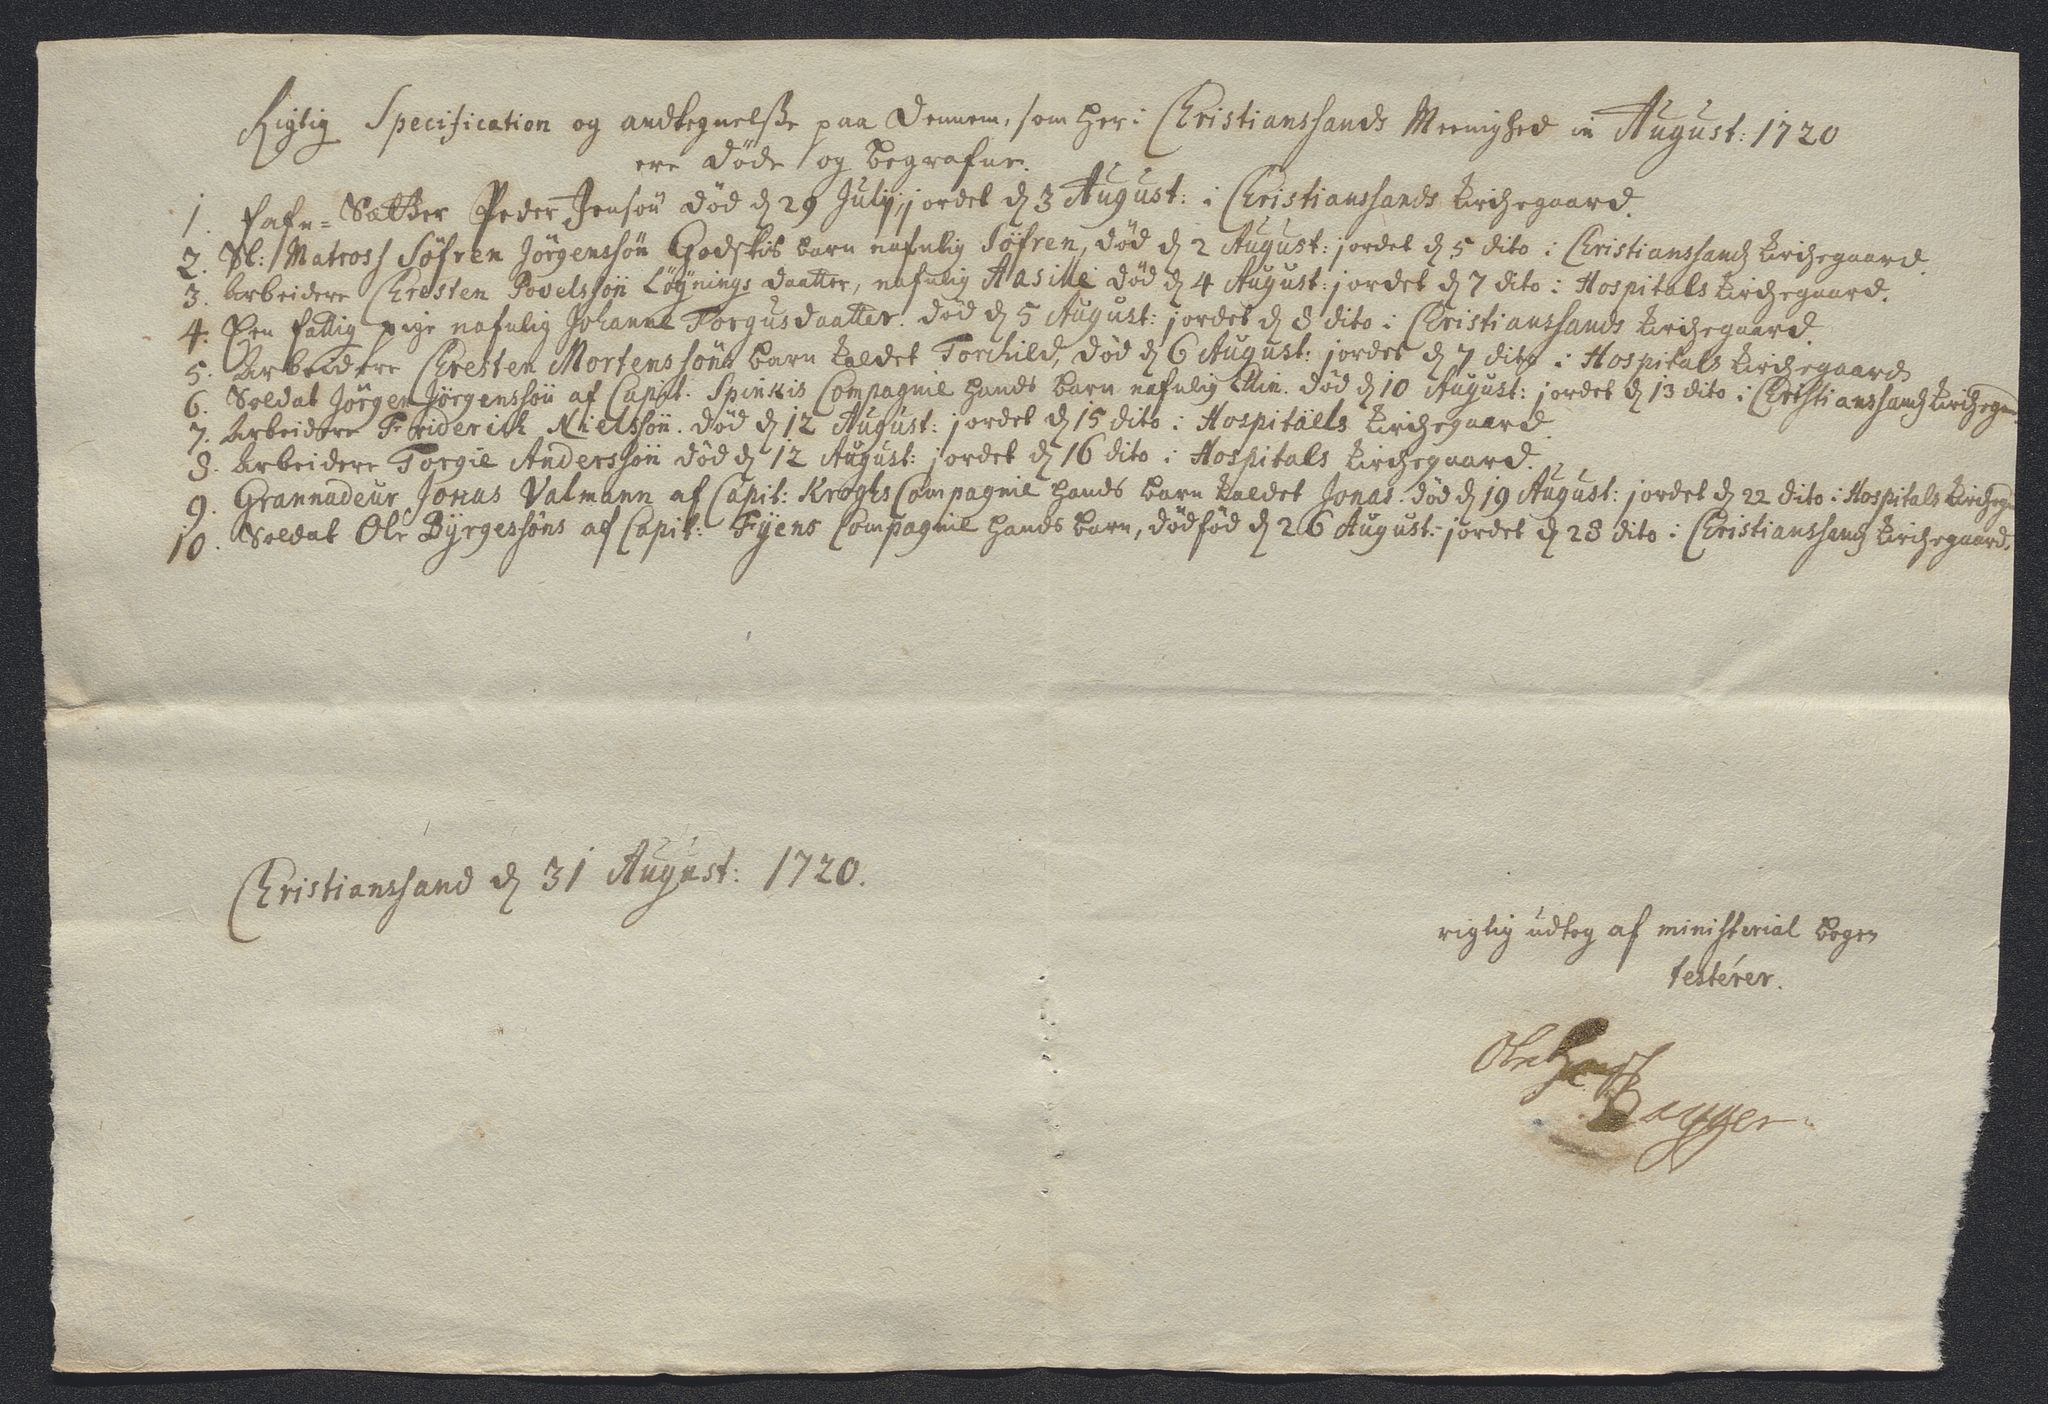 Rigtig Specification og andtegnelsse paa dennem, som her i Christianssands Meenighed in August: 1720
ere døde og begrafne.
1. Hafn= Sætter Peder Jensøn død d. 29 July, jordet d. 3 August: i Christianssands Kirchegaard.
2. Sl: Matross Søfren Jørgenssøn Godskis barn nafnlig Søfren, død d. 2 August: jordet d. 5 dito i Christianssands Kirchegaard.
3. Arbeidere Chresten Povelssøn Løgnings daatter, nafnlig Aasille død d. 4 August: jordet d. 7 dito i Hospitals Kirchegaard.
4. Een fattig pige nafnlig Johanne Torgusdaatter. død d. 5 August: jordet d. 8 dito i Christianssands Kirchegaard.
5. Arbeidere Chresten Mortenssøns barn kaldet Torchild, død d. 6 August: jordet d. 7 dito i Hospitals Kirchegaard
6. Soldat Jørgen Jørgenssøn af Capit. Spinkis Compagnie hands barn nafnlig død d. 10 August: jordet d. 13 dito i Christianssands Kirchegaa
7. Arbeidere Friderich Nielssøn. død d. 12 August: jordet d. 15 dito i Hospitalls Kirchegaard.
8. Arbeidere Torgie Anderssøn død d. 12 August: jordet d. 16 dito i Hospitals Kirchegaard.
9. Grannadeur Jonas Valmann af Capit: Kroghs Compagnie hands barn kaldet Jonas. død d. 19 August: jordet d. 22 dito i Hospitals Kirchega
10. Soldat Ole Byrgessøns af Capit: Fyens Compagnie hands barn, dødfød d. 26 August: jordet d. 28 dito i Christianssands Kirchegaard.
Christianssand d. 31 August: 1720.
rigtig udtog af ministerial bogen
testerer.
Ole Hans
Bagger